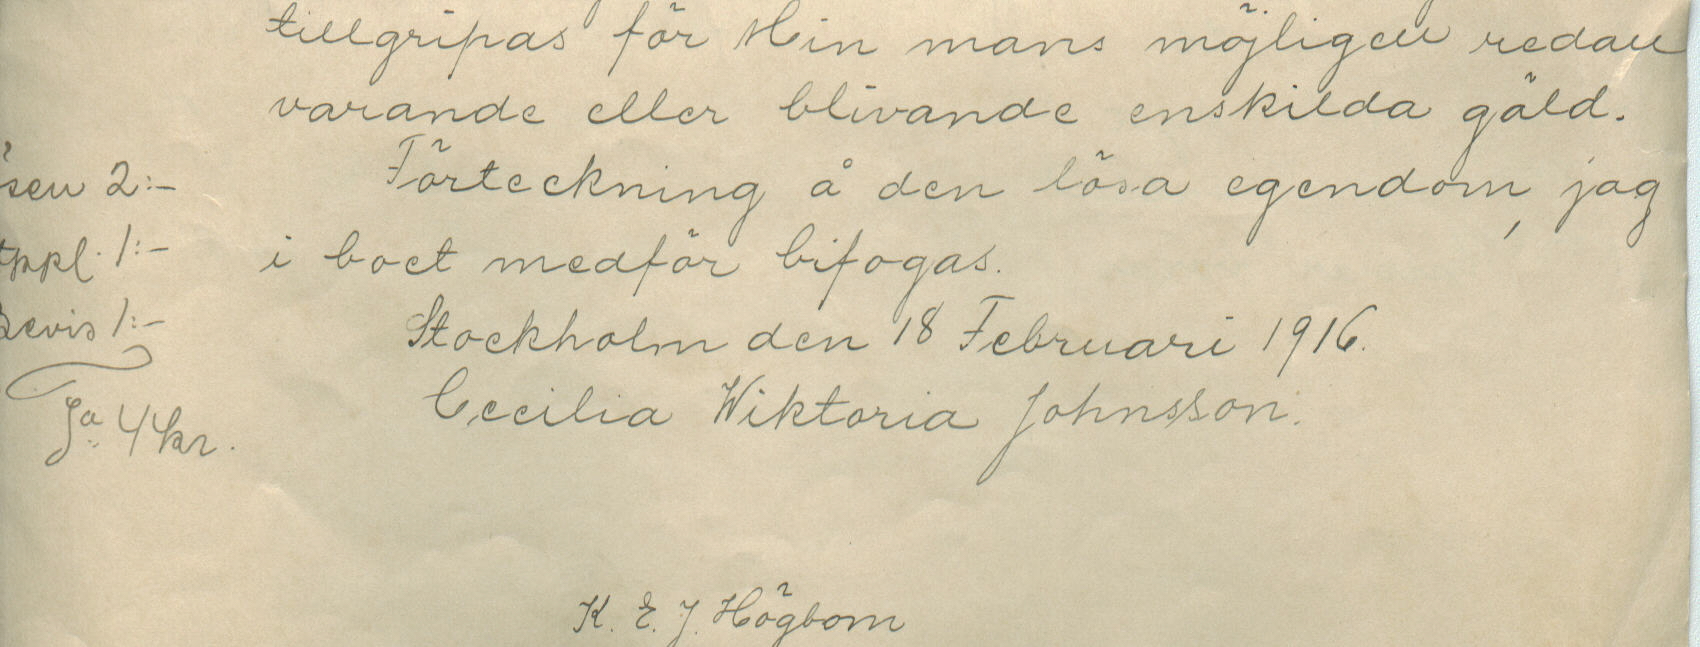 tillgripas för Min mans möjligen redan
varande eller blivande enskilda gäld.
Förteckning å den lösa egendom, jag
i boet medför bifogas.
Stockholm den 18 Februari 1916.
Cecilia Wiktoria Johnsson.
sen 2:-
ppl. 1:-
Bevis 1:-
Sa: 4 kr.
K. E. J. Högbom